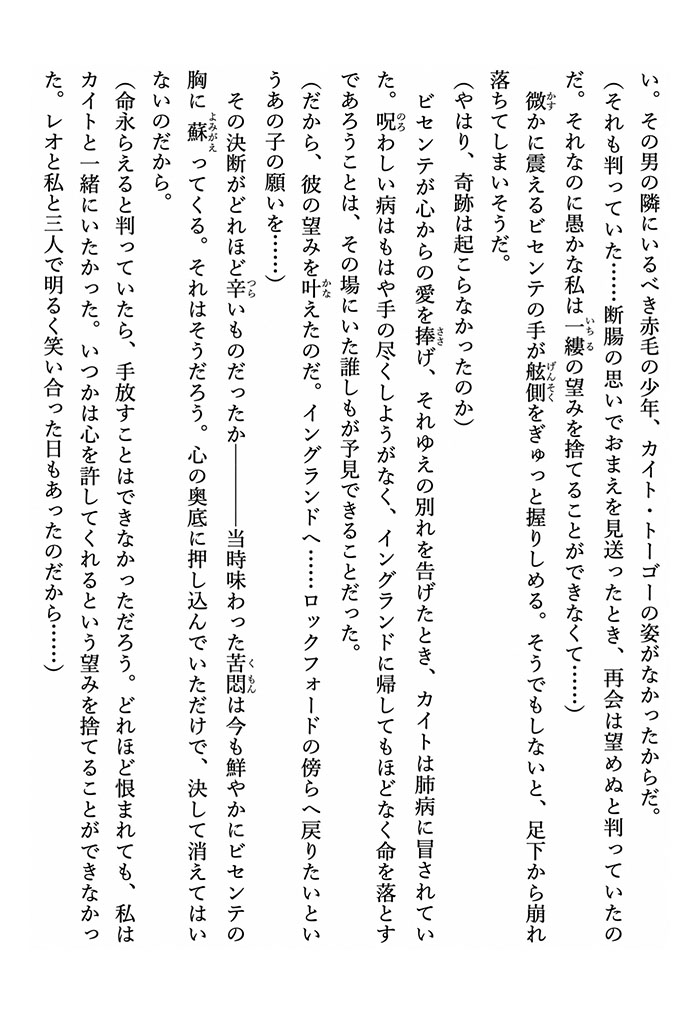 い。その男の隣にいるべき赤毛の少年、カイト・トーゴーの姿がなかったからだ。
（それも判っていた……断腸の思いでおまえを見送ったとき、再会は望めぬと判っていたの
だ。それなのに愚かな私は一縷の望みを捨てることができなくて……）
微かに震えるビセンテの手が舷側をぎゅっと握りしめる。そうでもしないと、足下から崩れ
落ちてしまいそうだ。
（やはり、奇跡は起こらなかったのか）
ビセンテが心からの愛を捧げ、それゆえの別れを告げたとき、カイトは肺病に冒されてい
た。呪わしい病はもはや手の尽くしようがなく、イングランドに帰してもほどなく命を落とす
であろうことは、その場にいた誰しもが予見できることだった。
（だから、彼の望みを叶えたのだ。イングランドへ……ロックフォードの傍らへ戻りたいとい
うあの子の願いを……）
その決断がどれほど辛いものだったか――当時味わった苦悶は今も鮮やかにビセンテの
胸に蘇ってくる。それはそうだろう。心の奥底に押し込んでいただけで、決して消えてはい
ないのだから。
（命永らえると判っていたら、手放すことはできなかっただろう。どれほど恨まれても、私は
カイトと一緒にいたかった。いつかは心を許してくれるという望みを捨てることができなかっ
た。レオと私と三人で明るく笑い合った日もあったのだから……）